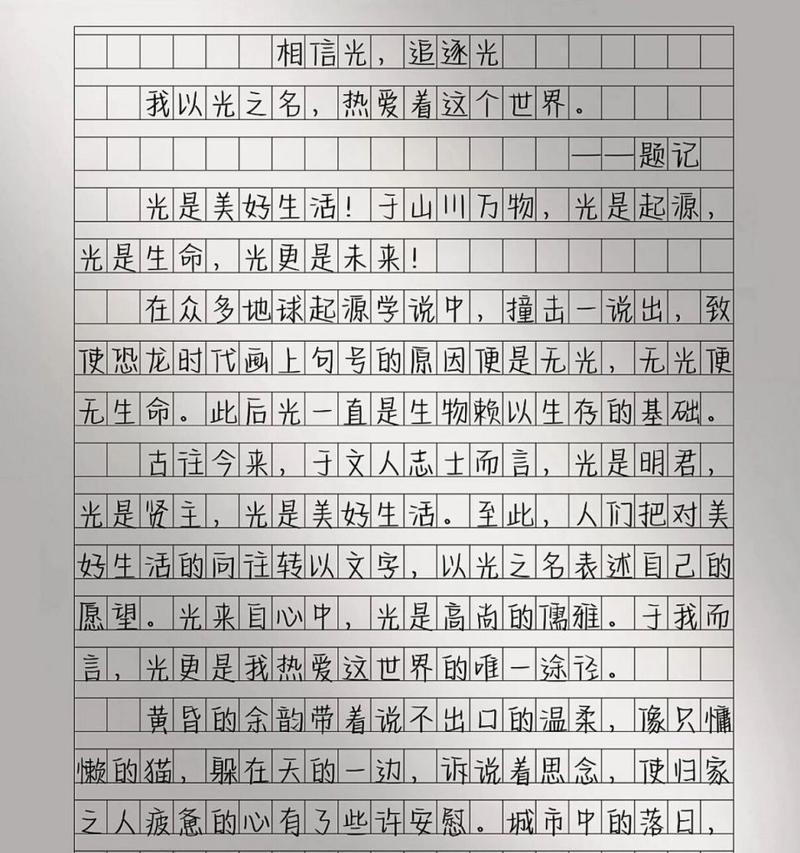 相信光，追逐光
我以光之名，热爱着这个世界。
——题记
光是美好生活！于山川万物，光是起源，
光是生命，光更是未来！
在众多地球起源学说中，撞击一说出，致
使恐龙时代画上句号的原因便是无光，无光便
无生命。此后光一直是生物赖以生存的基础。
古往今来，于文人志士而言，光是明君，
光是贤主，光是美好生活。至此，人们把对美
好生活的向往转以文字，以光之名表述自己的
愿望。光来自心中，光是高尚的儒雅。于我而
言，光更是我热爱这世界的唯一途径。
黄昏的余韵带着说不出口的温柔，像只慵
懒的猫，躲在天的一边，诉说着思念，使归家
之人疲惫的心有了些许安慰。城市中的落日，